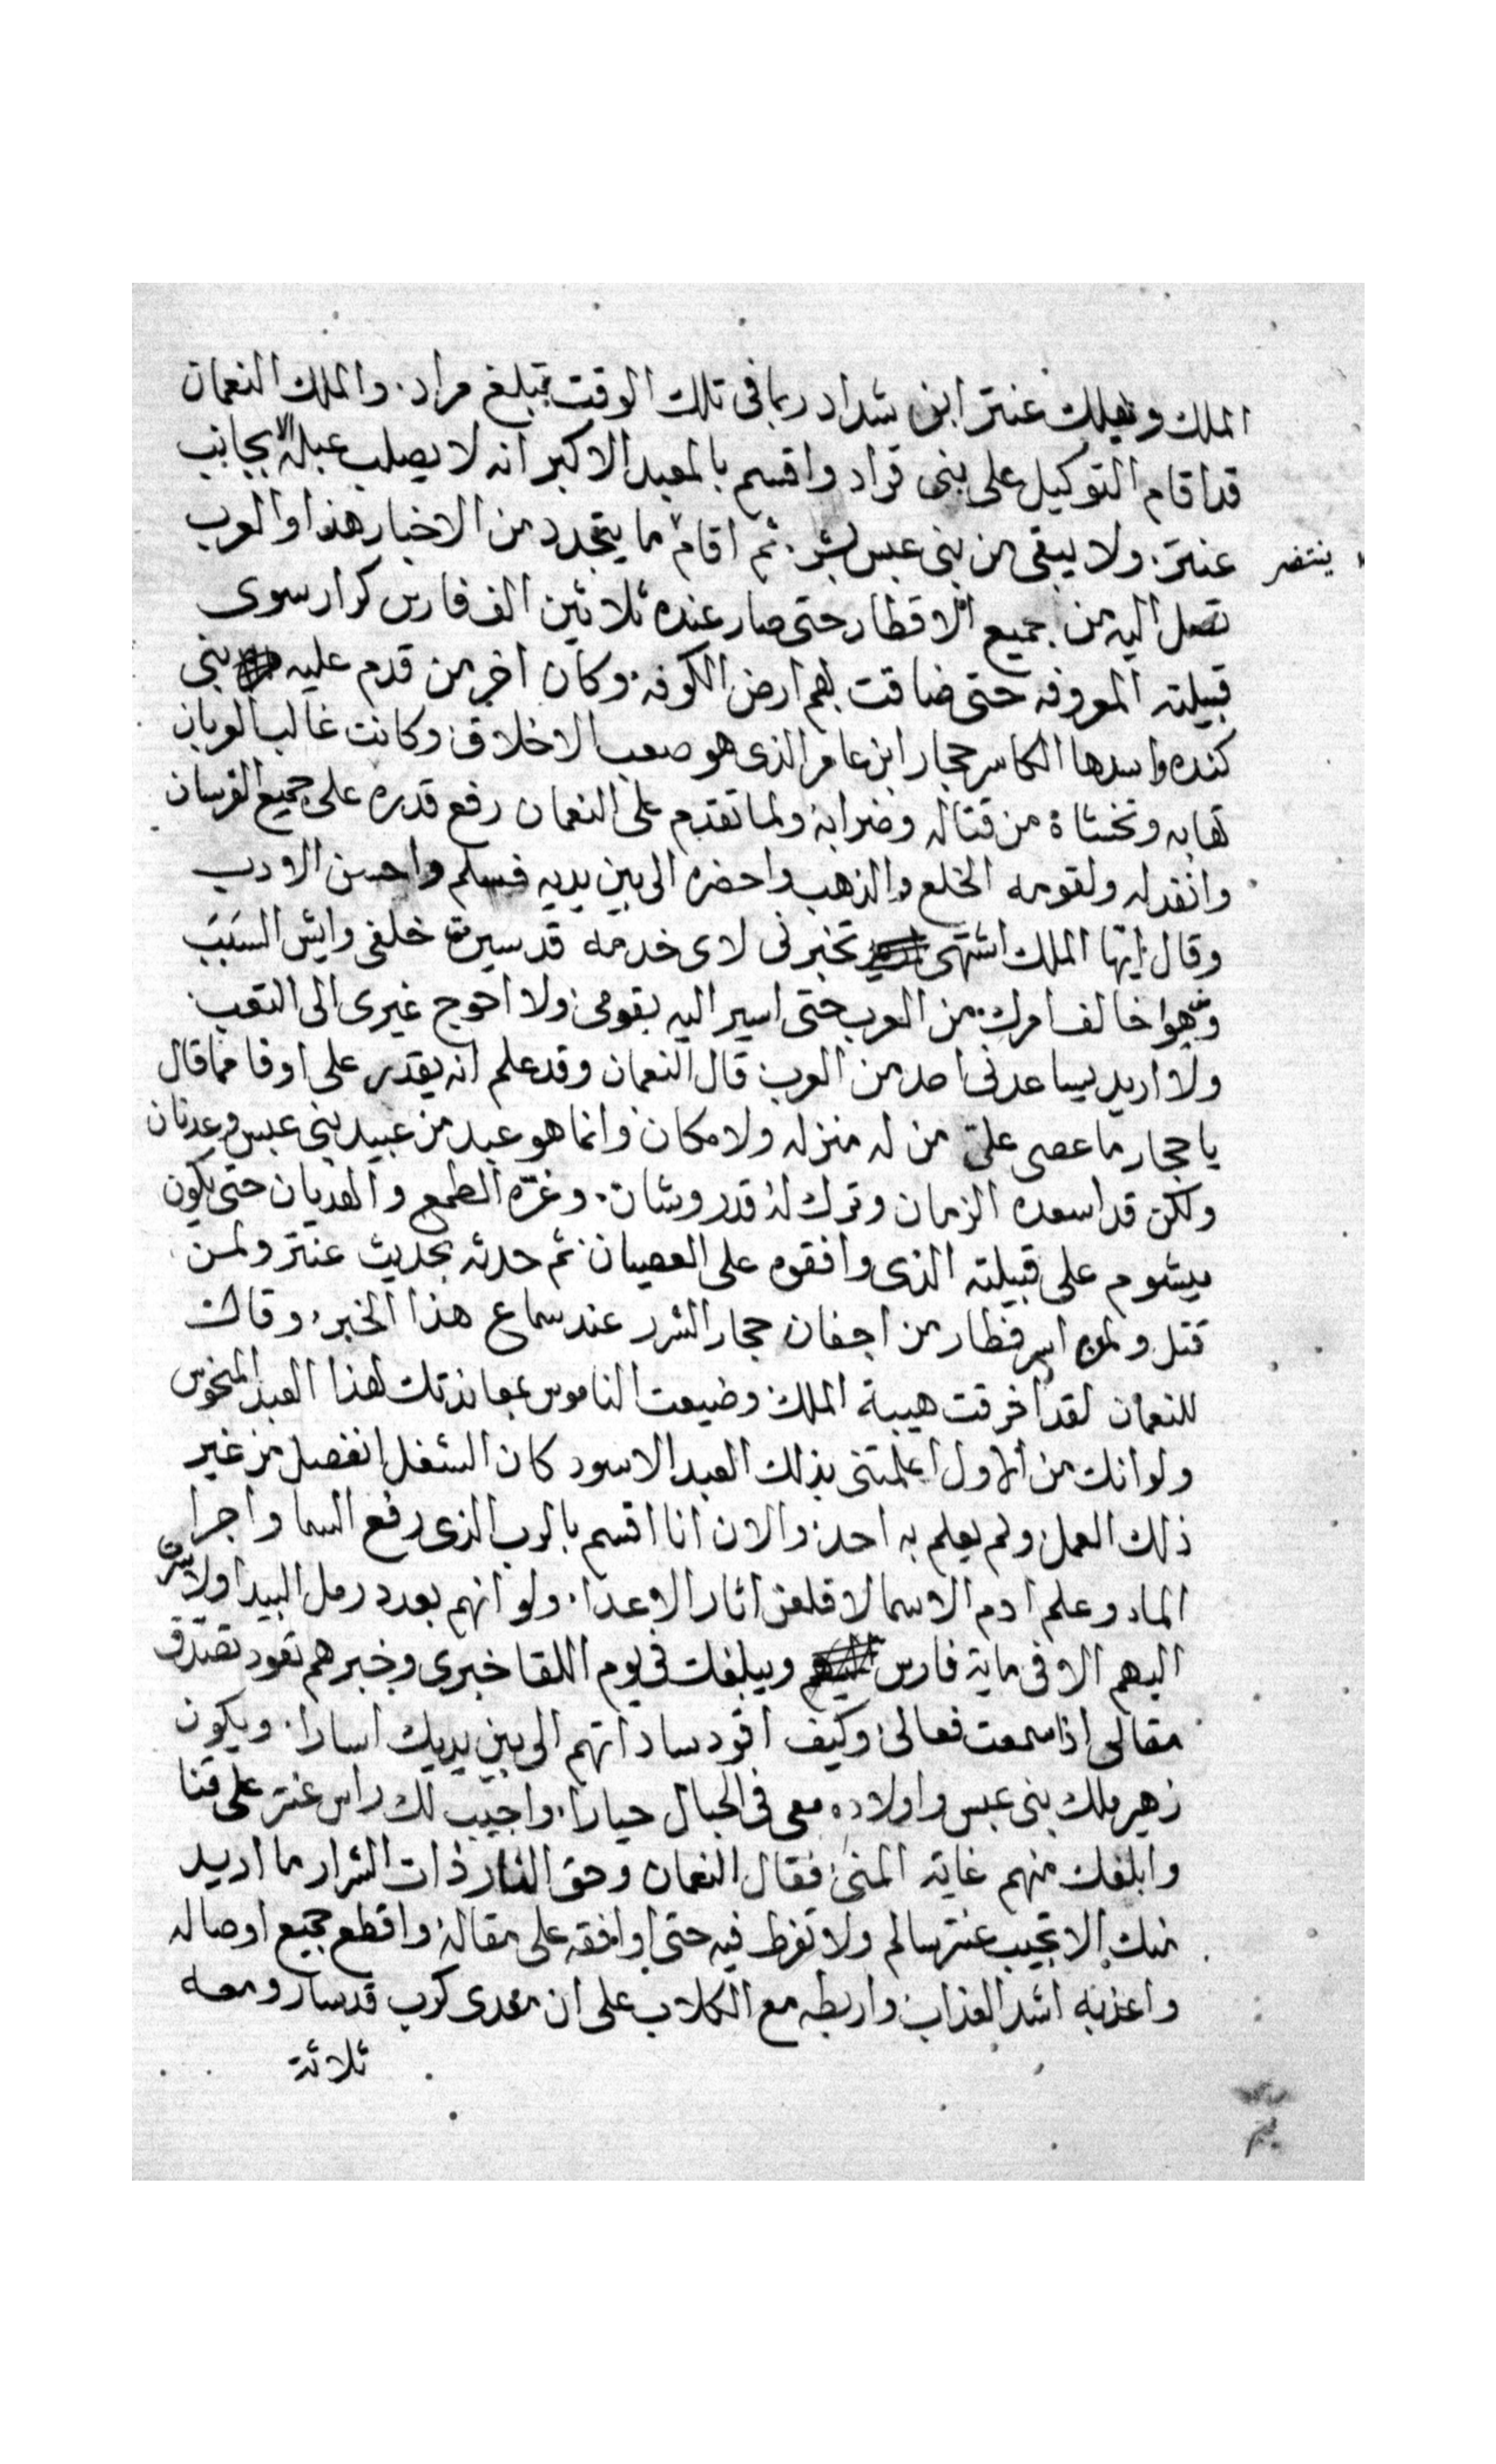 الملك ويهلك عنتر ابن شداد ربما فى تلك الوقت تبلغ مراد. والملك النعمان
قد اقام التوكيل على بنى قراد واقسم بالمعبد الاكبر انه لا يصلب عبله الا بجانب
عنتر. ولا يبقى من بنى عبس بشر. ثم اقام ما يتجدد من الاخبار هذا والعرب
ينتضر
تصل اليه من جميع الاقطار حتى صار عنده ثلاثين الف فارس كرار سوى
قبيلته المعروفه حتى ضاقت بهم ارض الكوفه. وكان اخر من قدم عليه بنى
كنده واسدها الكاسر حجار ابن عامر الذى هو صعب الاخلاق وكانت غالب العربان
تهابه وتخشاه من قتاله وضرابه ولما تقدم على النعمان رفع قدره على جميع الفرسان
وانفد له ولقومه الخلع والذهب واحضره الى بين يديه فسلم واحسن الادب
وقال ايها الملك اشتهى تخبرنى لاى خدمه قد سيرت خلفى وايش السبب
وهوا خالف امرك من العرب حتى اسير اليه بقومى ولا احوج غيرى الى التعب
ولا اريد يساعدنى احد من العرب قال النعمان وقد علم انه يقدر على اوفا مما قال
يا حجار ما عصى على من له منزله ولا مكان وانما هو عبد من عبيد بنى عبس وعدنان
ولكن قد اسعده الزمان وترك له قدر وشان. وغره الطمع والعديان حتى يكون
ميشوم على قبيلته الذى وافقوه على العصيان ثم حدثه بحديث عنتر ولمن
قتل ولمن اسر فطار من اجفان حجار الشرر عند سماع هذا الخبر. وقال
للنعمان لقد اخرقت هيبة الملك وضيعت الناموس بمعاندتك لهذا العبد المنحوس
ولو انك من الاول اعلمتنى بذلك العبد الاسود كان الشغل انفصل من غير
ذلك العمل ولم يعلم به احد والان انا اقسم بالرب الذى رفع السما واجرا
الماء وعلم ادم الاسما لاقلعن اثار الاعدا. ولو انهم بعدد رمل البيدا ولا سرت
اليهم الا فى ماية فارس ويبلغك فى يوم اللقا خبرى وخبرهم تعود تصدق
مقالى اذا سمعت فعالى وكيف اقود ساداتهم الى بين يديك اسارا. ويكون
زهير ملك بنى عبس واولاده معى فى الحبال حيارا. واجيب لك راس عنتر على قنا
وابلغك منهم غاية المنى فقال النعمان وحق النار ذات الشرار ما اريد
منك الا تجيب عنتر سالم ولا تفرط فيه حتى اوافقه على مقاله واقطع جميع اوصاله
واعذبه اشد العذاب واربطه مع الكلاب على ان معدى كرب قد سار ومعه
ثلاثة